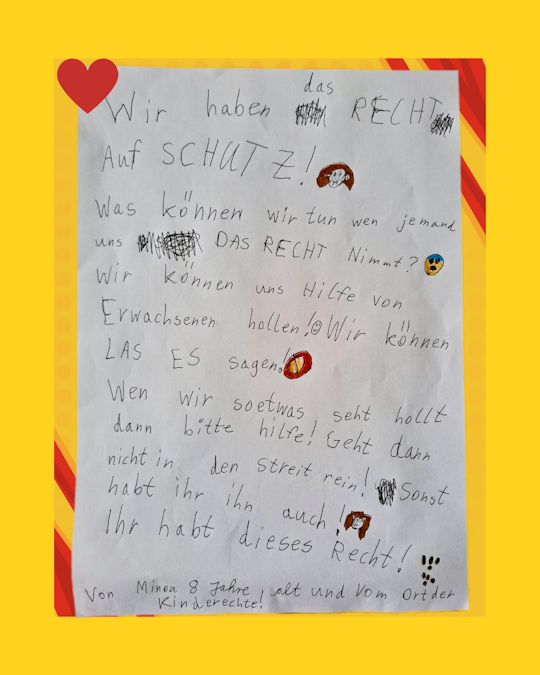 Wir haben das RECHT
Auf SCHUTZ!
Was können wir tun wen jemand
uns DAS RECHT Nimmt?
Wir können uns Hilfe von
Erwachsenen hollen! Wir können
LAS ES sagen!
Wen wir soetwas seht hollt
dann bitte hilfe! Geht dann
nicht in den streit rein! Sonst
habt ihr ihn auch!
Ihr habt dieses Recht!!!!
Von Minoa 8 Jahre alt und Vom Ort der
Kinderechte!